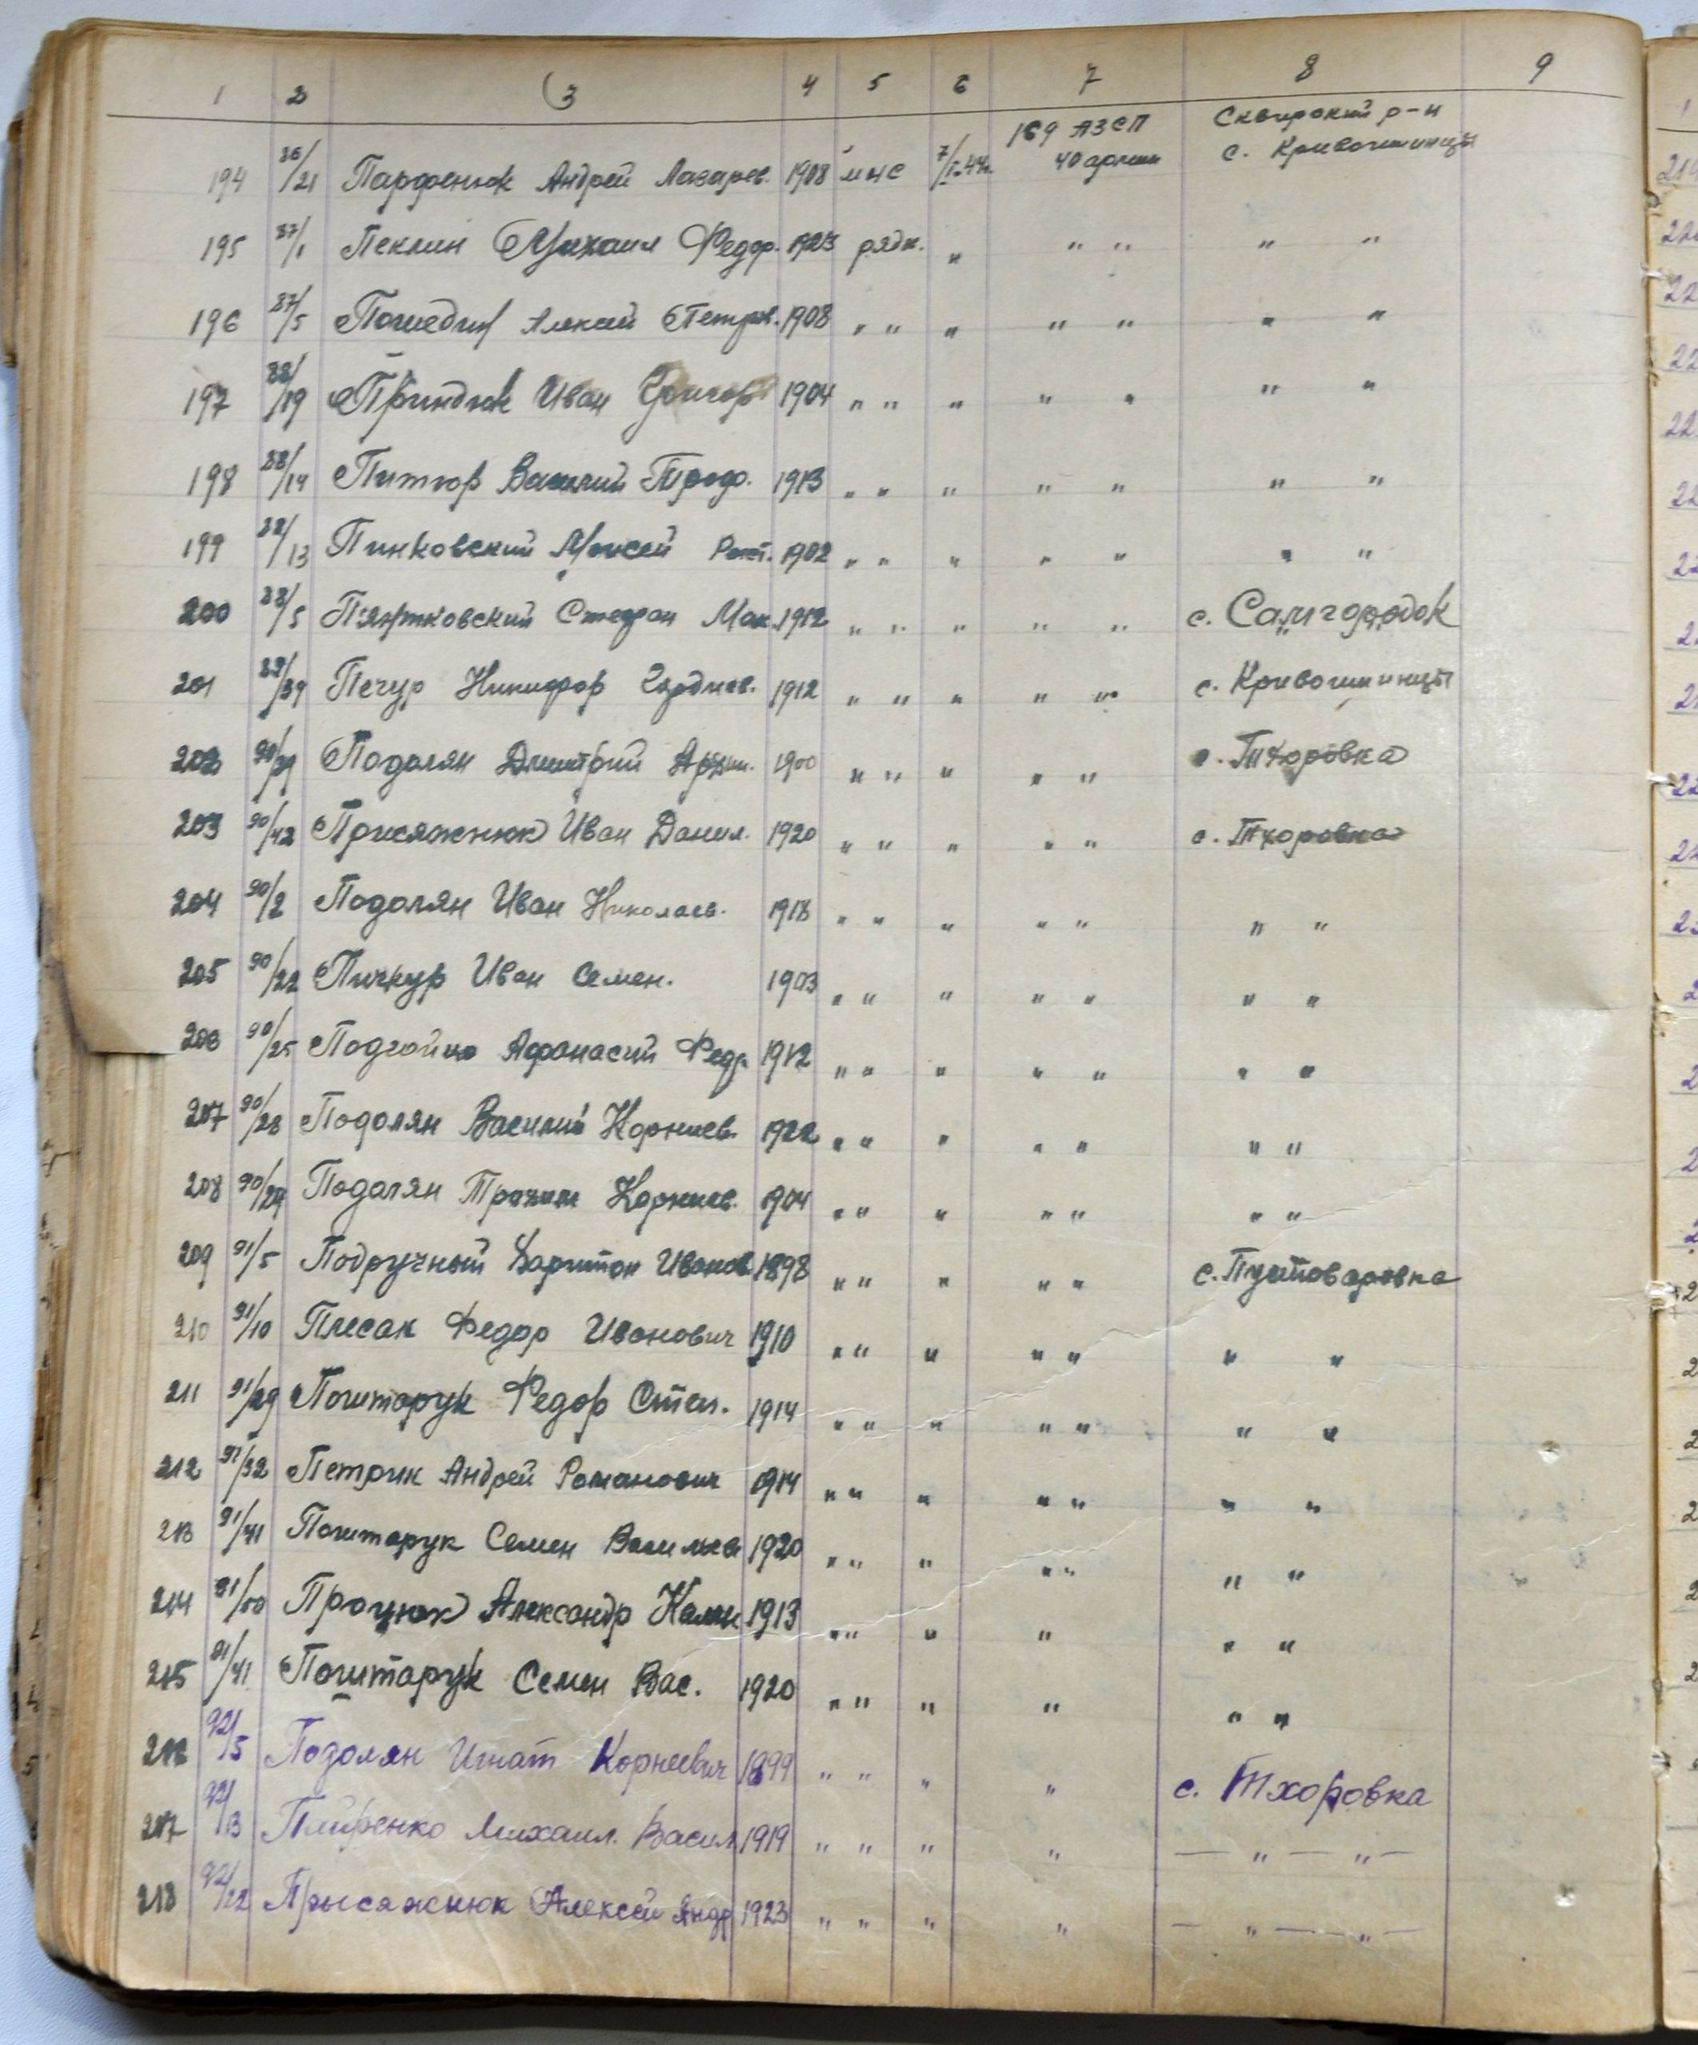 1 2 3 4 5 6 7 8 9
194 86/21 Парфенюк Андрей Лазарев. 1908 мнс 7/I.44г. 169 АЗСП 40 армии Сквирский р-н с. Кривошинцы
195 87/1 Пеклин Михаил Федор. 1923 рядк. " " " " "
196 87/5 Пошедин Алексей Петров. 1908 " " " " " " "
197 88/19 Приндюк Иван Григор 1904 " " " " " " "
198 88/14 Питюр Василий Троф. 1913 " " " " " " "
199 88/13 Пинковский Моисей 1902 " " " " " " "
200 88/5 Пянтковский Стефан Мак. 1912 " " " " " с. Самгородок
201 89/39 Печур Никифор 1912 " " " " " с. Кривошинцы
202 90/29 Подолян Дмитрий 1900 " " " " " с. Тхоровка
203 90/42 Присяжнюк Иван Данил. 1920 " " " " " с. Тхоровка
204 90/2 Подолян Иван Николаев. 1918 " " " " " " "
205 90/22 Пичкур Иван Семен. 1903 " " " " " " "
206 90/25 Афанасий Федр. 1912 " " " " " " "
207 90/28 Подолян Василий Корнеев. 1922 " " " " " " "
208 90/29 Подолян Трохим Корнеев. 1904 " " " " " " "
209 91/5 Подручный Харитон Иванов. 1898 " " " " " с. Пустоваровка
210 91/10 Плесак Федор Иванович 1910 " " " " " " "
211 91/29 Поштарук Федор Степ. 1914 " " " " " " "
212 91/32 Петрик Андрей Романович 1914 " " " " " " "
213 91/41 Поштарук Семен Васильев 1920 " " " " " " "
214 91/50 Процюк Александр 1913 " " " " " "
215 91/41 Поштарук Семен Вас. 1920 " " " " " "
216 92/5 Подолян Игнат Корнеевич 1899 " " " " с. Тхоровка
217 92/13 Михаил. Васил. 1919 " " " " — " — " —
218 92/22 Прысяжнюк Алексей Андр 1923 " " " " — " — " —